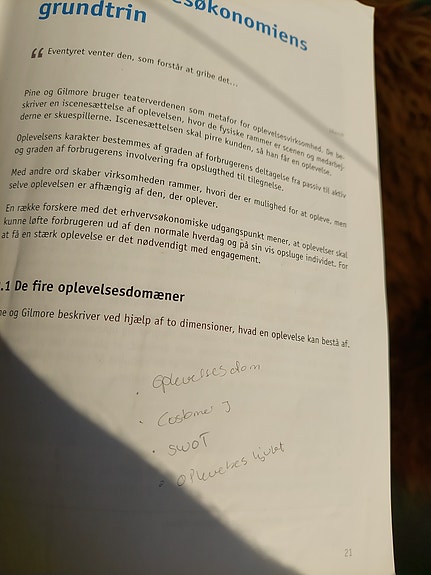 esøkonomiens
grundtrin
“ Eventyret venter den, som forstår at gribe det...
Pine og Gilmore bruger teaterverdenen som metafor for oplevelsesvirksomhed. De be-
skriver en iscenesættelse af oplevelsen, hvor de fysiske rammer er scenen og medarbej-
derne er skuespillerne. Iscenesættelsen skal pirre kunden, så han får en oplevelse.
Oplevelsens karakter bestemmes af graden af forbrugerens deltagelse fra passiv til aktiv
og graden af forbrugerens involvering fra opslugthed til tilegnelse.
Med andre ord skaber virksomheden rammer, hvori der er mulighed for at opleve, men
selve oplevelsen er afhængig af den, der oplever.
En række forskere med det erhvervsøkonomiske udgangspunkt mener, at oplevelser skal
kunne løfte forbrugeren ud af den normale hverdag og på sin vis opsluge individet. For
at få en stærk oplevelse er det nødvendigt med engagement.
.1 De fire oplevelsesdomæner
ne og Gilmore beskriver ved hjælp af to dimensioner, hvad en oplevelse kan bestå af.
· Oplevelsesdom
·
· SWOT
· Oplevelseshjulet
21